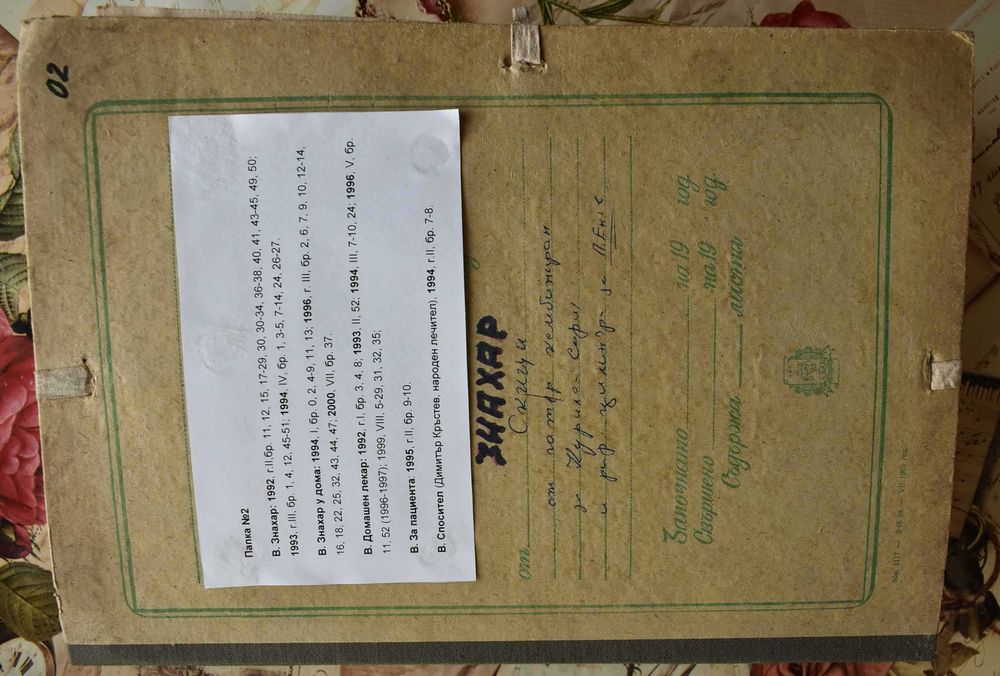 02
Папка №2
В. Знахар: 1992, г.II,бр. 11, 12, 15, 17-29, 30, 30-34, 36-38, 40, 41, 43-45, 49, 50;
1993, г.III, бр. 1, 4, 12, 45-51; 1994, IV, бр. 1, 3-5, 7-14, 24, 26-27.
В. Знахар у дома: 1994, I, бр. 0, 2, 4-9, 11, 13; 1996, г. III, бр. 2, 6, 7, 9. 10, 12-14,
16, 18, 22, 25, 32, 43, 44, 47; 2000, VII, бр. 37.
В. Домашен лекар: 1992, г.I, бр. 3, 4, 8; 1993, II, 52; 1994, III, 7-10, 24; 1996, V, бр.
11, 52 (1996-1997); 1999, VIII, 5-29, 31, 32, 35;
В. За пациента: 1995, г.II, бр. 9-10.
В. Спосител (Димитър Кръстев, народен лечител), 1994, г.II, бр. 7-8.
ЗНАХАР
от Скици
от
Курило - София
и за
Започнато на 19 год
Свършено на 19 год.
Съдържа листа